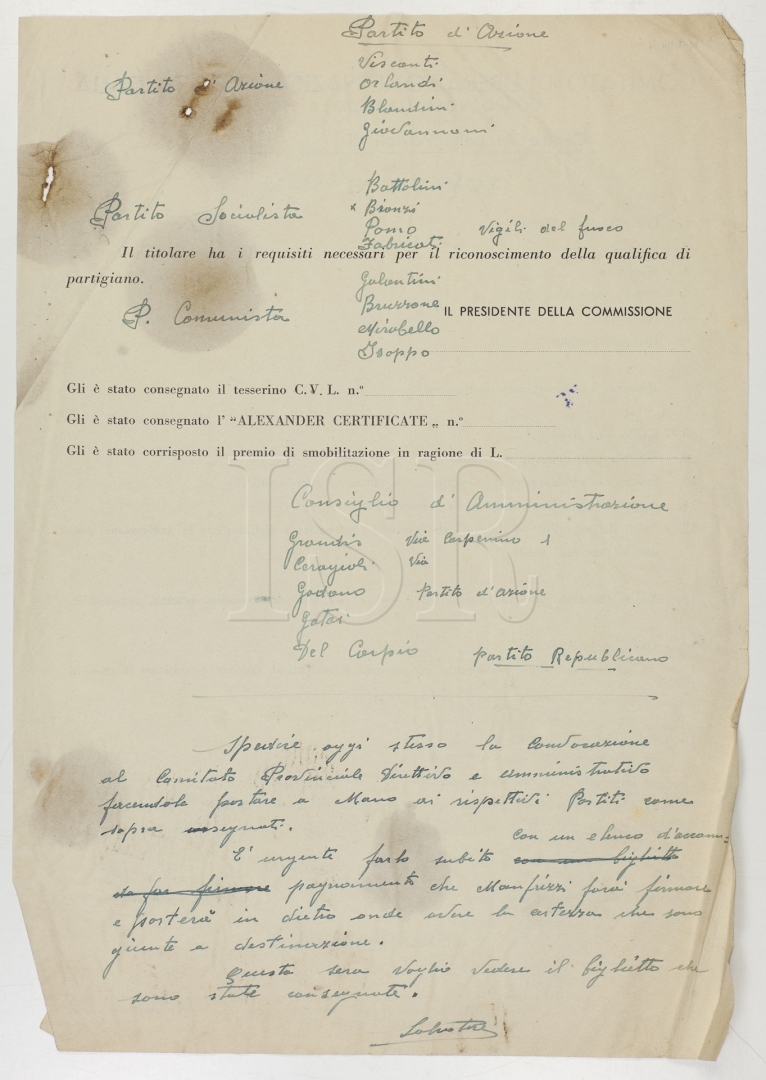 Partito d'Azione
Partito d'Azione
Visconti
Orlandi
Blandini
Giovannoni
Partito Socialista
Battolini
x Bronzi
Pomo Vigili del fuoco
Fabricati
Il titolare ha i requisiti necessari per il riconoscimento della qualifica di
partigiano.
P. Comunista
Galantini
Bruzzone
Mirabello
Isoppo
IL PRESIDENTE DELLA COMMISSIONE
Gli è stato consegnato il tesserino C.V.L. n.º
Gli è stato consegnato l' "ALEXANDER CERTIFICATE „ n.º
Gli è stato corrisposto il premio di smobilitazione in ragione di L.
ISR
Consiglio d'Amministrazione
Grandis Via Carpenino 1
Ceragioli Via
Godano Partito d'azione
Del Carpio partito Republicano
Spedire oggi stesso la Convocazione
al Comitato Provinciale Direttivo e amministrativo
facendole portare a Mano ai rispettivi Partiti come
sopra segnati.
È urgente farlo subito con un biglietto con un elenco d'accom=
da far firmare pagnamento che Manfrizzi farà firmare
e porterà in dietro onde avere la certezza che sono
giunte a destinazione.
Questa sera voglio vedere il biglietto che
sono state consegnate.
Salvatore